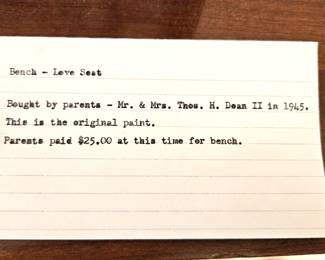 Bench - Love Seat
Bought by parents - Mr. & Mrs. Thos. H. Dean II in 1945.
This is the original paint.
Parents paid $25.00 at this time for bench.